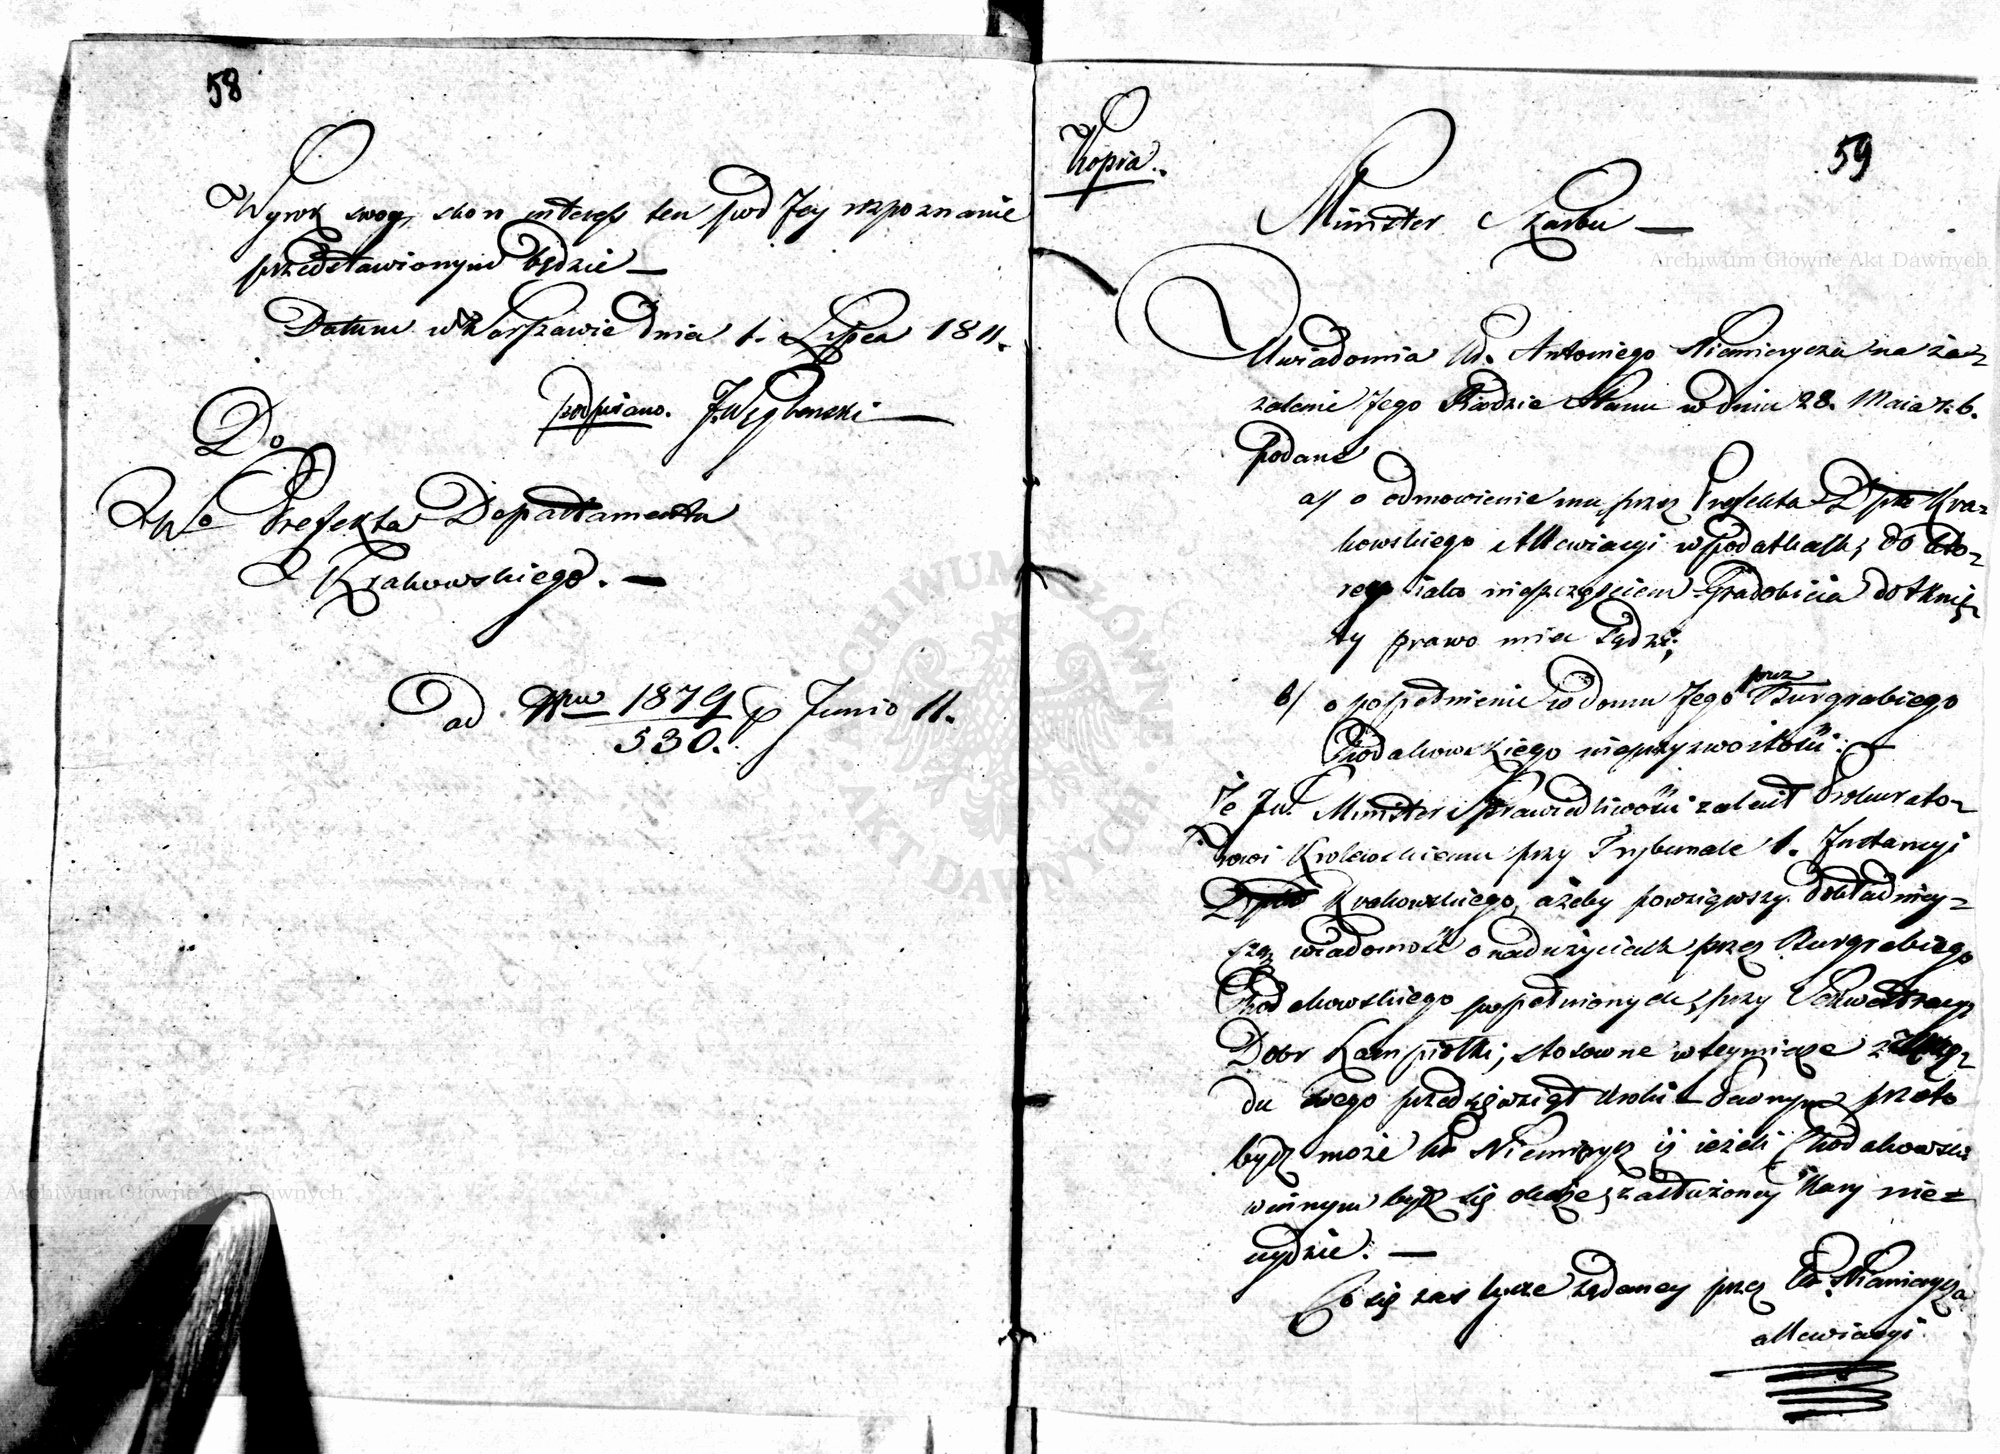 58
Wyrok swoy, skoro interess ten pod Jey rozpoznanie
przedstawionym będzie —
Datum w Warszawie dnia 1. Lipca 1811.
podpisano. J. Węgleński —
Do
JWo Prefekta Departamentu
Krakowskiego. —
ad Nru 1879/530. p Junio 11.
Kopia.
59
Minister Skarbu —
Uwiadomia Ur. Antoniego Niemierycza na za=
zalenie Jego Radzie Stanu w dniu 28. Maia r. b.
podane
a/ o odmowienie mu, przez Prefekta Dptu Kra=
kowskiego allewiacyi w podatkach, do kto=
rey iako nieszczęściem Gradobicia dotknię=
ty prawo mieć sądzi;
b/ o popełnienie w domu Jego przez Burgrabiego
Chodakowskiego nieprzyzwoitości: —
Że JW. Minister Sprawiedliwości zalecił Prokurato=
rowi Krolewskiemu przy Trybunale 1. Instancyi
Dptu Krakowskiego, ażeby powziąwszy dokładniey=
szą wiadomość o nadużyciach przez Burgrabiego
Chodakowskiego popełnionych, przy Sekwestracyi
Dobr stosowne w teymierze z Urzę=
du swego przedsięwziął kroki. Pewnym przeto
bydź może Ur. Niemierycz iż ieżeli Chodakowski
winnym bydź się okaże, zasłużoney kary nie=
uydzie. —
Co się zas tycze żądaney przez Ur. Niemierycza
allewiacyi
Archiwum Główne Akt Dawnych
Archiwum Główne Akt Dawnych
ARCHIWUM GŁÓWNE · AKT DAWNYCH ·